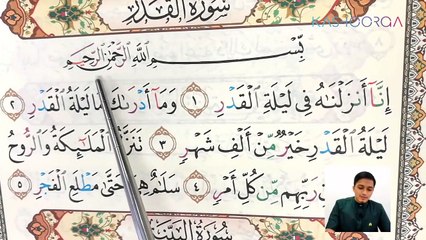 سُورَةُ الْقَدْرِ
بِسْمِ اللَّهِ الرَّحْمَٰنِ الرَّحِيمِ
إِنَّآ أَنزَلْنَٰهُ فِى لَيْلَةِ الْقَدْرِ ١ وَمَآ أَدْرَىٰكَ مَا لَيْلَةُ الْقَدْرِ ٢
لَيْلَةُ الْقَدْرِ خَيْرٌ مِّنْ أَلْفِ شَهْرٍ ٣ تَنَزَّلُ الْمَلَٰٓئِكَةُ وَالرُّوحُ
رَبِّهِم مِّن كُلِّ أَمْرٍ ٤ سَلَٰمٌ هِىَ حَتَّىٰ مَطْلَعِ الْفَجْرِ ٥
سُورَةُ الْبَيِّنَةِ